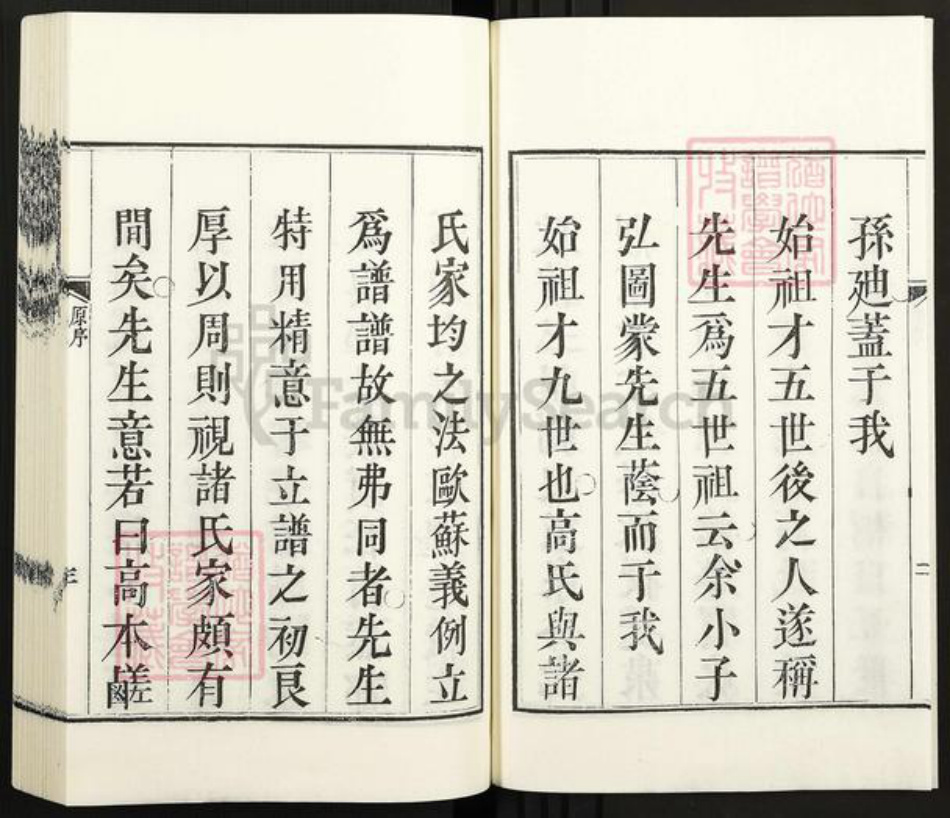 孫廸蓋于我
始祖才五世後之人遂稱
先生爲五世祖云余小子
弘圖蒙先生蔭而于我
始祖才九世也高氏與諸
二
氏家均之法歐蘇義例立
爲譜譜故無弗同者先生
特用精意于立譜之初良
厚以周則視諸氏家頗有
間矣先生意若曰高本
原序
三
FamilySearch